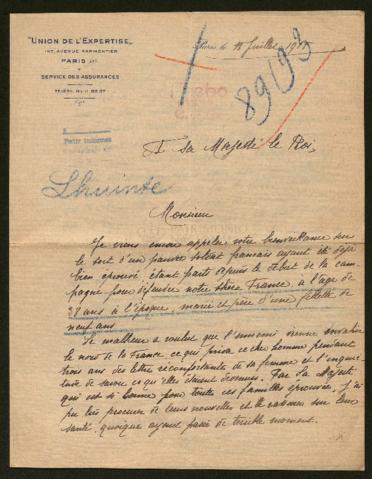 "UNION DE L'EXPERTISE"
AVENUE PARMENTIER
PARIS
SERVICE DES ASSURANCES
Paris le Juillet
A sa Majesté le Roi,
Lhuinte
Monsieur
Je viens encore appeler votre bienveillance sur
le sort d'un pauvre soldat français ayant été déjà
bien éprouvé étant parti depuis le début de la cam
pagne pour défendre notre chère France à l'age de
38 ans à l'époque, marié et père d'une fillette de
neuf ans
Le malheur a voulu que l'ennemi vienne envahir
le nord de la France ce qui priva ce cher homme pendant
trois ans des lettres réconfortantes de sa femme et l'inquié
tude de savoir ce qu'elles étaient devenues. Par sa Majesté
qui est si bonne pour toutes ces familles éprouvées, j'ai
pu lui procurer de leurs nouvelles et le rassurer sur leur
santé, quoique ayant passé de terrible moment.